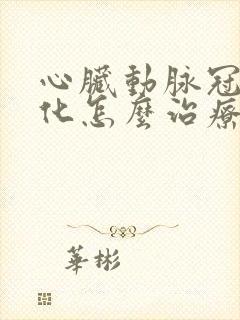 心臟動脉冠
化怎麼治療
華彬